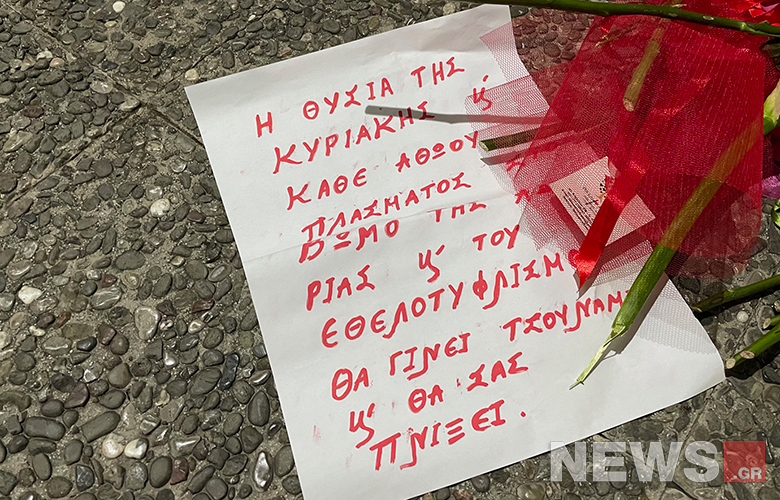 Η ΘΥΣΙΑ ΤΗΣ
ΚΥΡΙΑΚΗΣ ϗ
ΚΑΘΕ ΑΘΩΟΥ
ΠΛΑΣΜΑΤΟΣ
ΒΩΜΟ ΤΗΣ
ΡΙΑΣ ϗ ΤΟΥ
ΕΘΕΛΟΤΥΦΛΙΣΜ
ΘΑ ΓΙΝΕΙ ΤΣΟΥΝΑΜΙ
ϗ ΘΑ ΣΑΣ
ΠΝΙΞΕΙ.
NEWS.GR